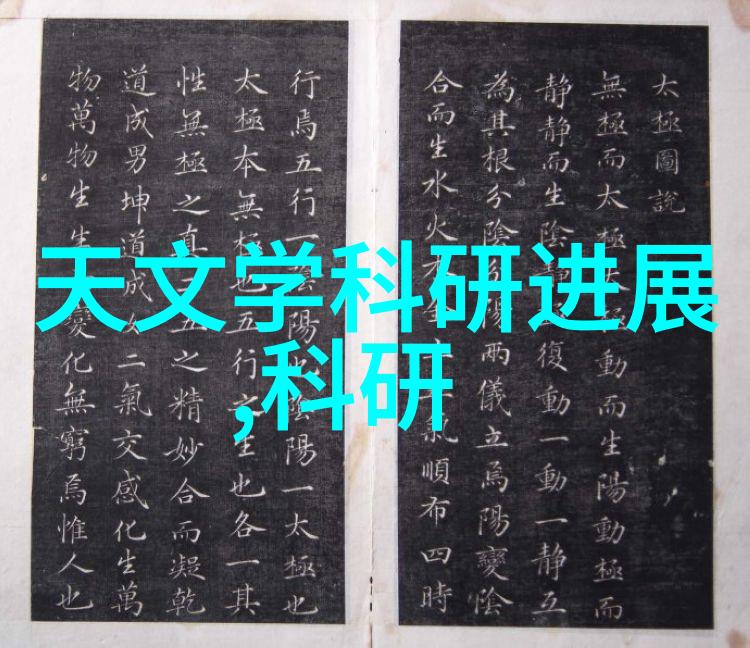 天文学科研进展
,科研
太極圖說
無極而太極太極動而生陽動極而
静静而生陰静復動一動一静互
為其根分陰分陽兩儀立焉陽變陰
合而生水火木金氣順布四時
行焉五行一陰陽也陰陽一太極也
太極本無極也五行之生也各一其
性無極之真五之精妙合而凝乾
道成男坤道成女二氣交感化生萬
物萬物生生變化無窮焉惟人也